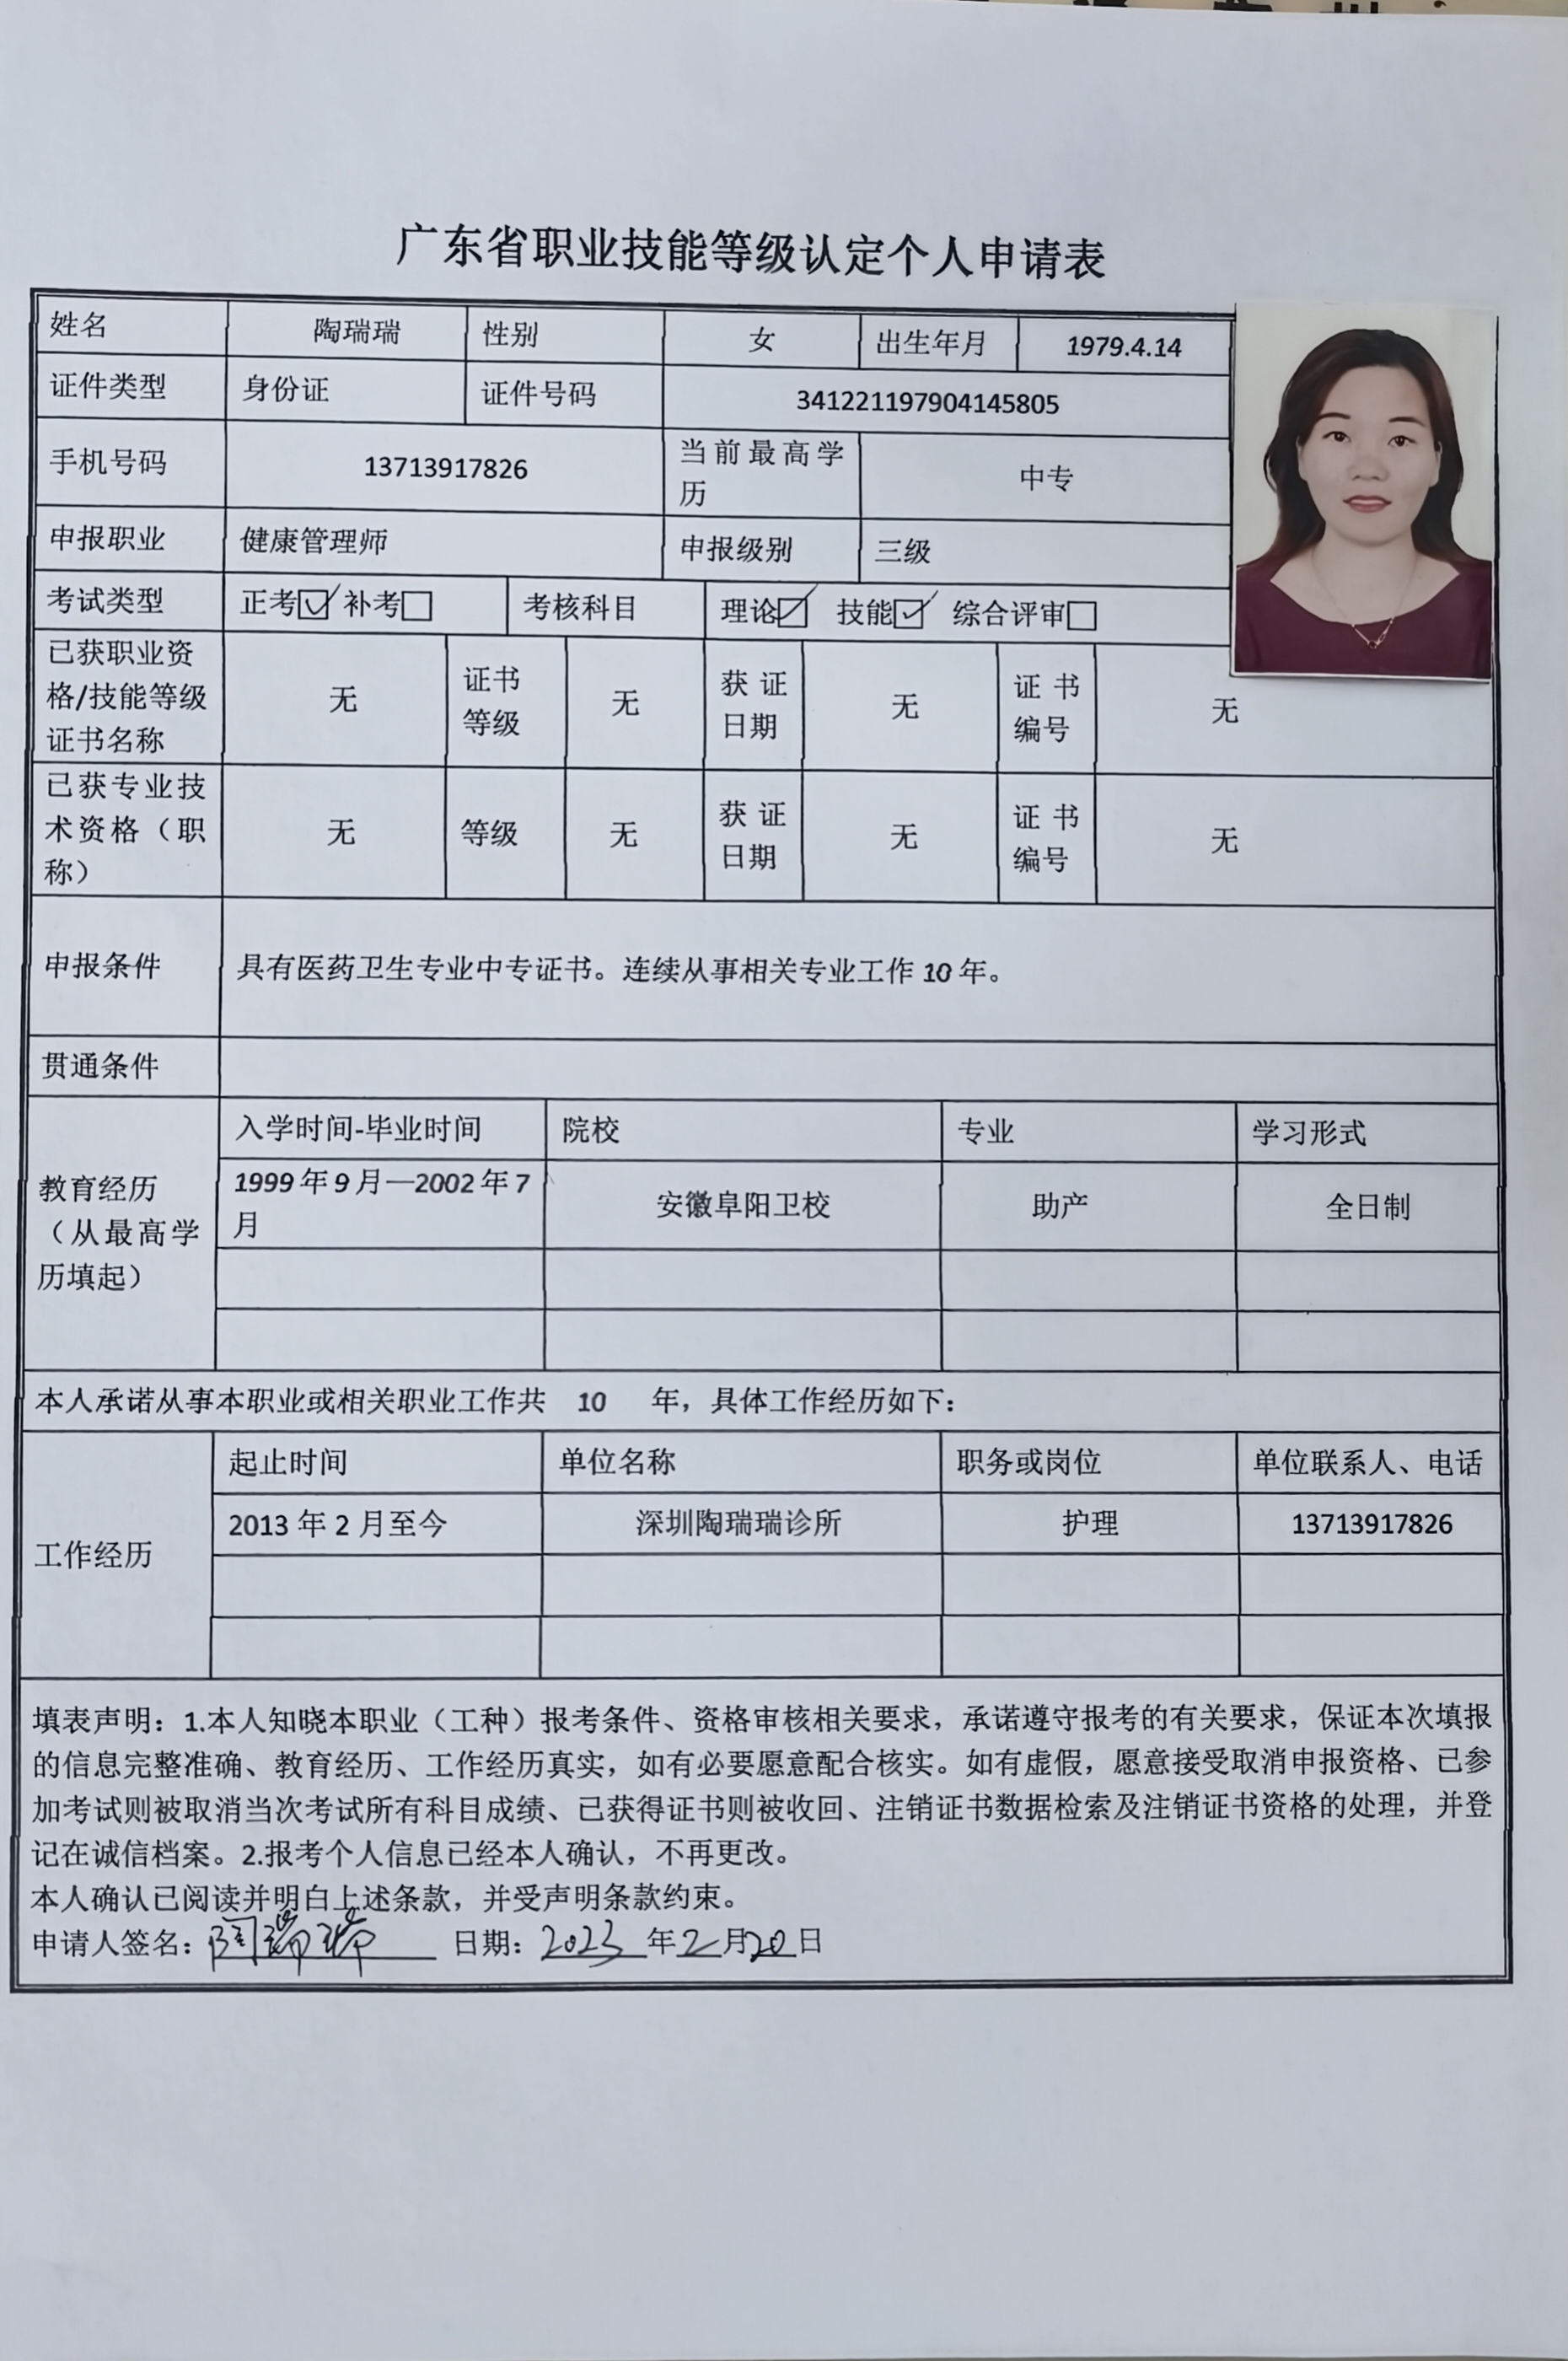 广东省职业技能等级认定个人申请表
姓名 陶瑞瑞 性别 女 出生年月 1979.4.14
证件类型 身份证 证件号码 341221197904145805
手机号码 13713917826 当前最高学历 中专
申报职业 健康管理师 申报级别 三级
考试类型 正考☑ 补考☐ 考核科目 理论☑ 技能☑ 综合评审☐
已获职业资格/技能等级证书名称 无 证书等级 无 获证日期 无 证书编号 无
已获专业技术资格（职称） 无 等级 无 获证日期 无 证书编号 无
申报条件 具有医药卫生专业中专证书。连续从事相关专业工作 10 年。
贯通条件
教育经历（从最高学历填起） 入学时间-毕业时间 院校 专业 学习形式
1999 年 9 月—2002 年 7 月 安徽阜阳卫校 助产 全日制
本人承诺从事本职业或相关职业工作共 10 年，具体工作经历如下：
工作经历 起止时间 单位名称 职务或岗位 单位联系人、电话
2013 年 2 月至今 深圳陶瑞瑞诊所 护理 13713917826
填表声明：1.本人知晓本职业（工种）报考条件、资格审核相关要求，承诺遵守报考的有关要求，保证本次填报
的信息完整准确、教育经历、工作经历真实，如有必要愿意配合核实。如有虚假，愿意接受取消申报资格、已参
加考试则被取消当次考试所有科目成绩、已获得证书则被收回、注销证书数据检索及注销证书资格的处理，并登
记在诚信档案。2.报考个人信息已经本人确认，不再更改。
本人确认已阅读并明白上述条款，并受声明条款约束。
申请人签名：陶瑞瑞 日期：2023 年 2 月 20 日